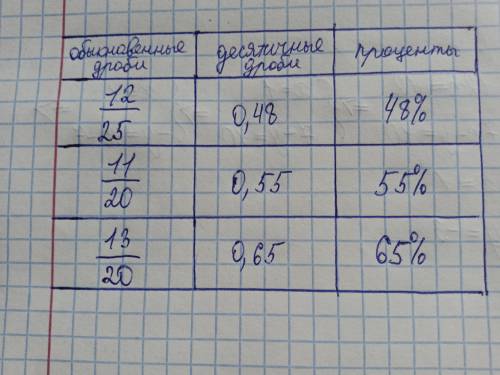 обыкновенные дроби десятичные дроби проценты
12/25 0,48 48%
11/20 0,55 55%
13/20 0,65 65%